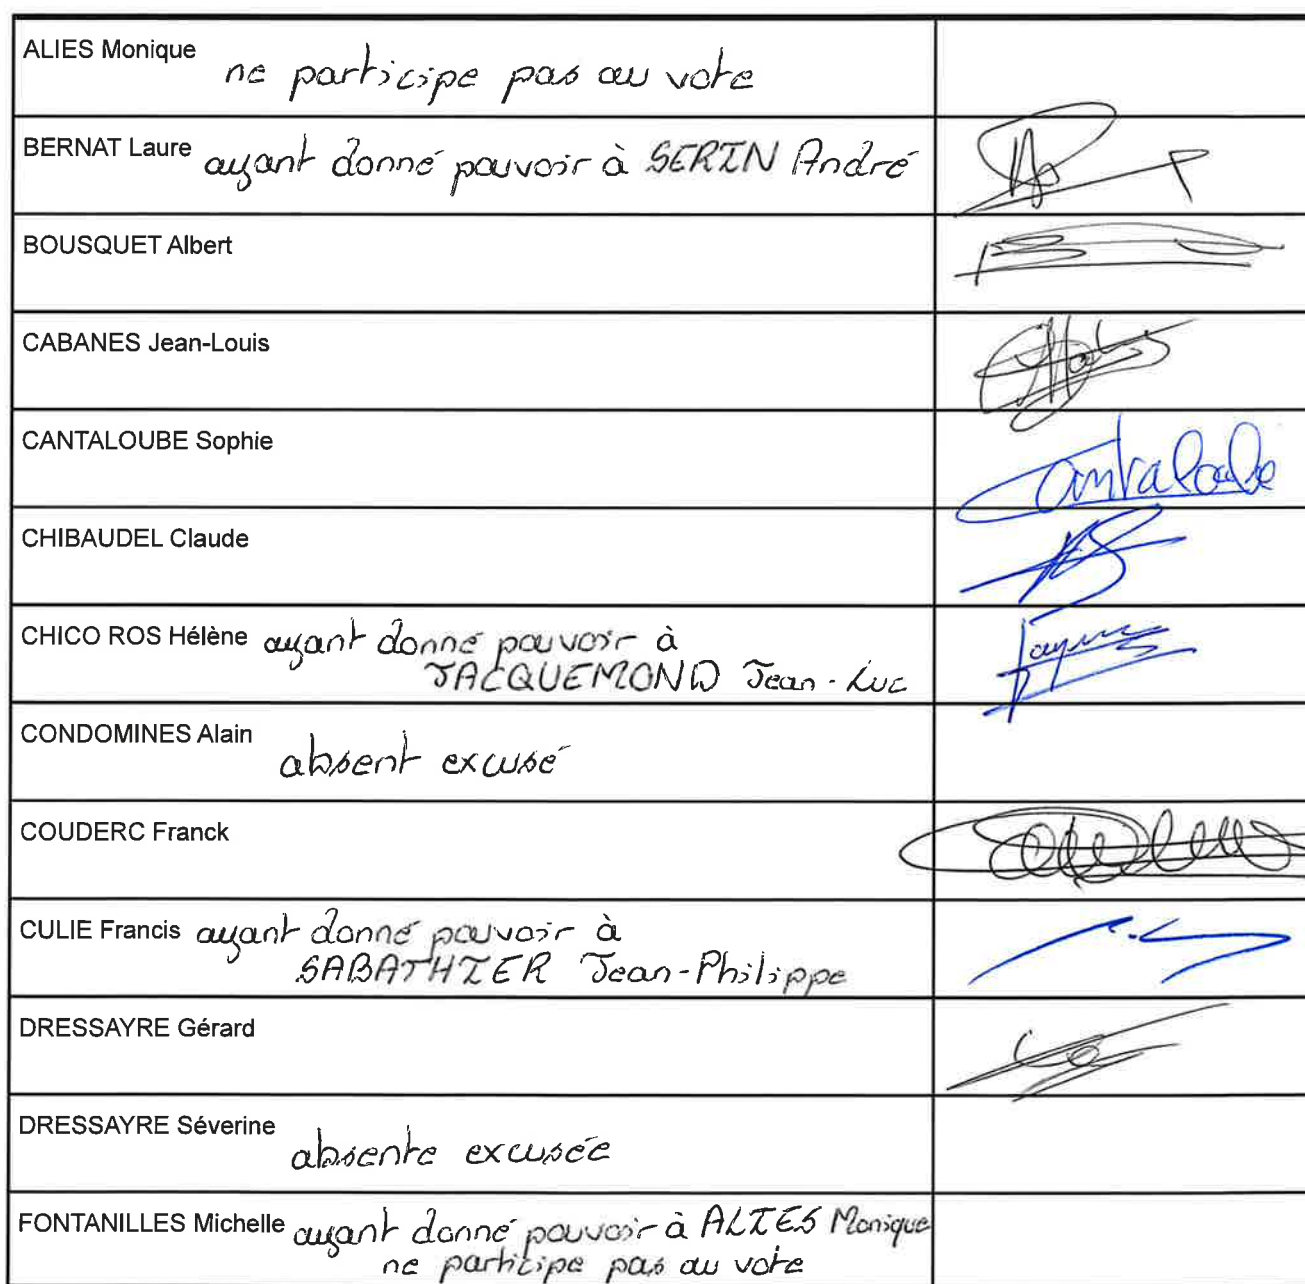 ALIES Monique ne participe pas au vote
BERNAT Laure ayant donné pouvoir à SERIN André
BOUSQUET Albert
CABANES Jean-Louis
CANTALOUBE Sophie Cantaloube
CHIBAUDEL Claude
CHICO ROS Hélène ayant donné pouvoir à
JACQUEMOND Jean-Luc
CONDOMINES Alain absent excusé
COUDERC Franck
CULIE Francis ayant donné pouvoir à
SABATHIER Jean-Philippe
DRESSAYRE Gérard
DRESSAYRE Séverine absente excusée
FONTANILLES Michelle ayant donné pouvoir à ALIES Monique
ne participe pas au vote